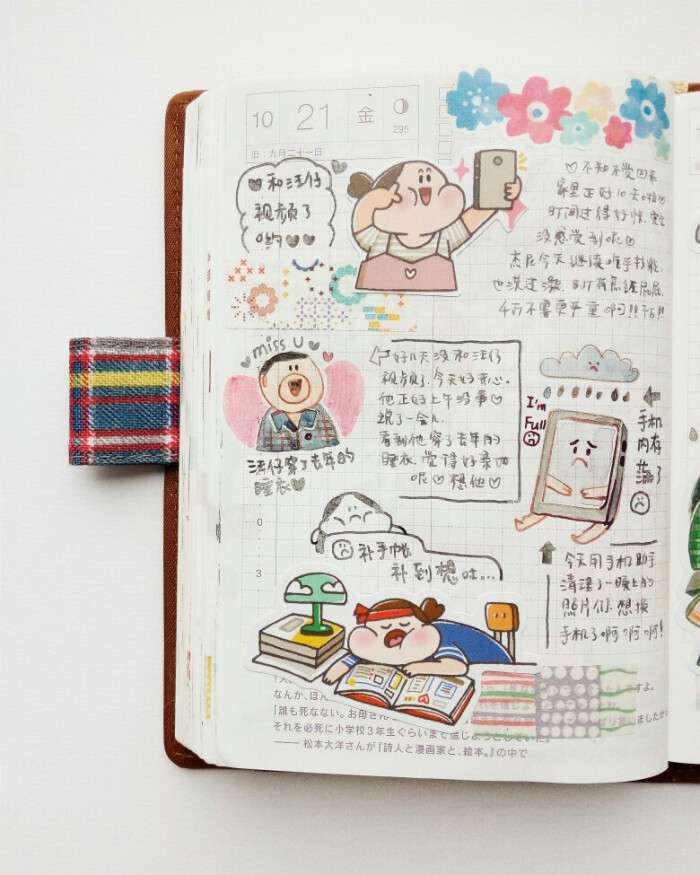 10 21 金
295
旧：九月二十一日
和汪仔
视频了
哟
不知不觉回来
家里正好10天啦
时间过得好快，完全
没感觉到呢
今天继续
也没过
千万不要 严重啊!!
miss U
汪仔穿了去年的
睡衣
好几天没和汪仔
视频了，今天好开心。
他正好上午没事
聊了一会儿
看到他穿了去年的
睡衣，觉得好亲切
呢 想他
I'm
Full
手机
内存
满了
0
3
补手帐
补到想吐...
今天用手机助手
清理了一晚上的
照片们，想换
手机了啊啊啊!
なんか、ほん
「誰も死なない。お母さん
それを必死に小学校3年生ぐらいまで信じようとしていた。
—— 松本大洋さんが『詩人と漫画家と、絵本。』の中で